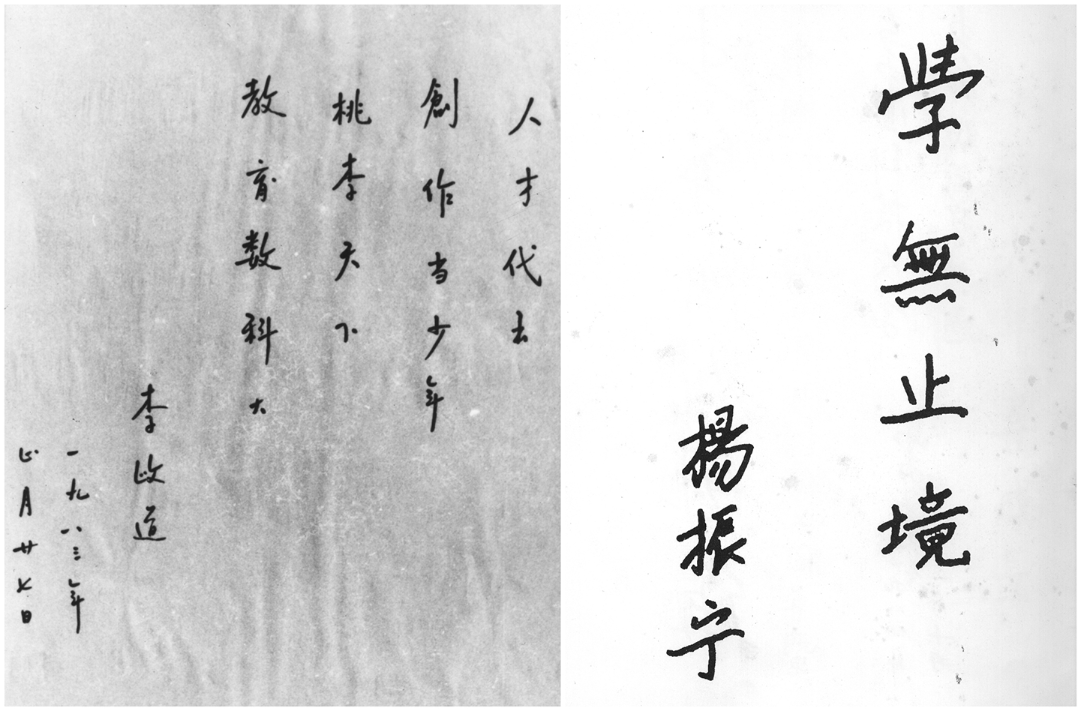 人才代出
創作当少年
桃李天下
教育数科大
李政道
一九八三年
正月廿七日
學無止境
楊振宁